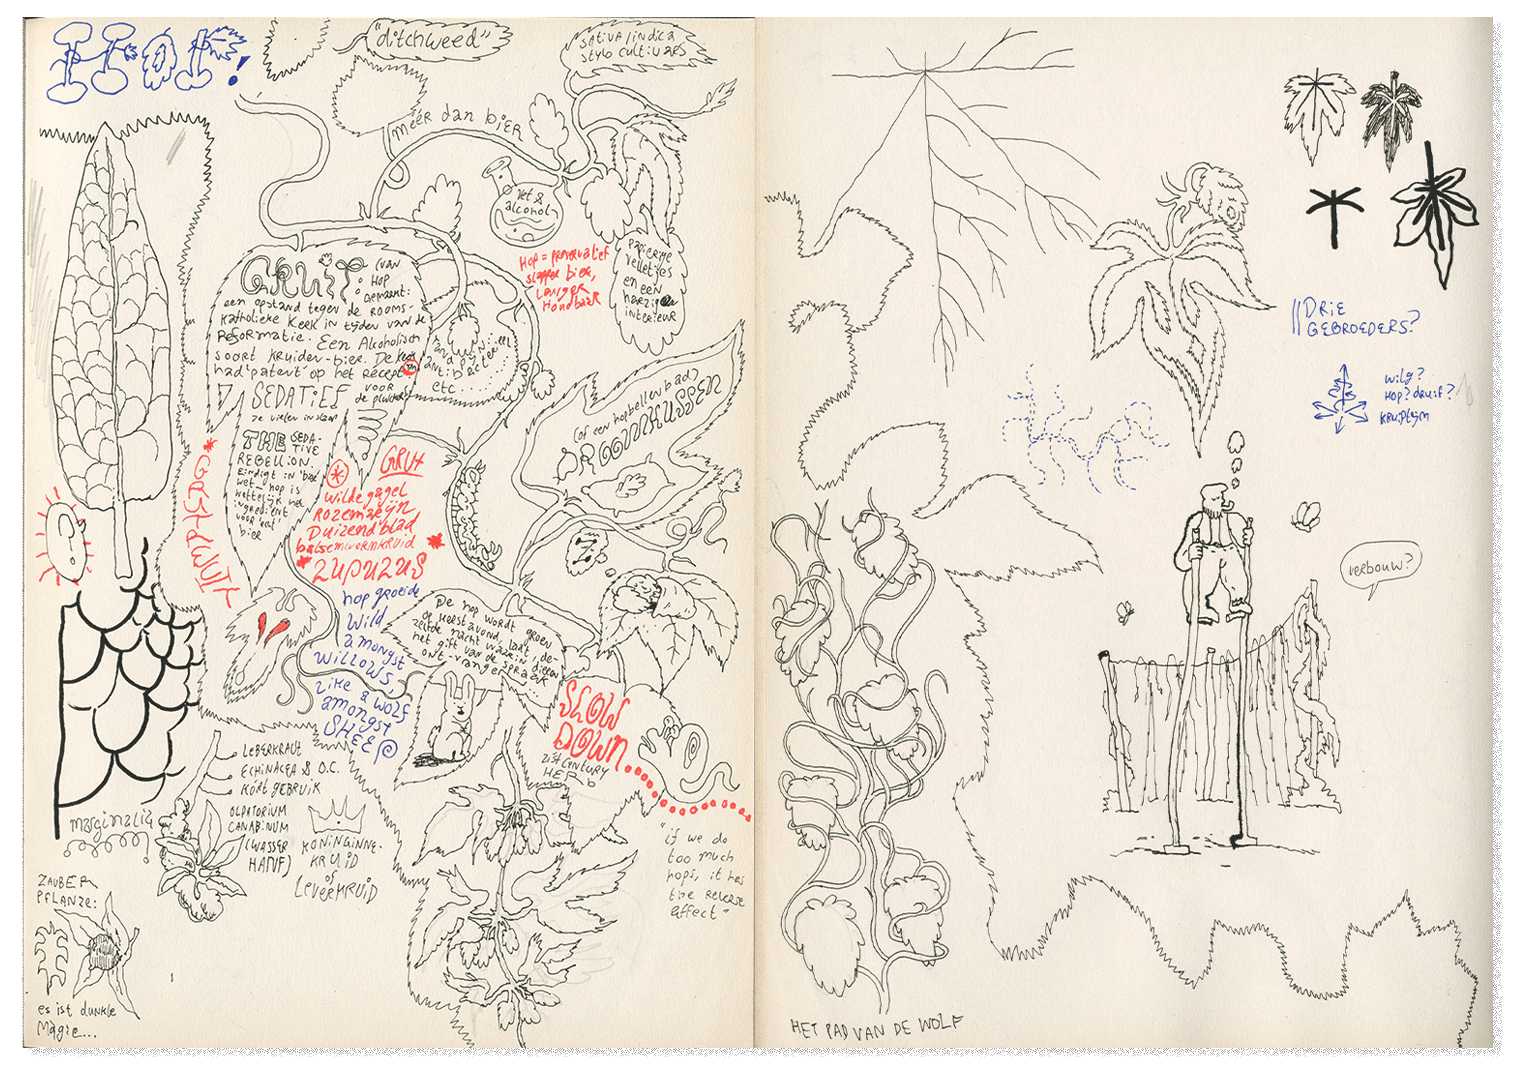 HOP!
"ditchweed"
sativa/indica
stylo cultivars
meer dan bier
vet &
alcohol
Hop = preservatief
slapper bier,
langer
Houdbaar
papierige
velletjes
en een
harzig
interieur
GRUIT
(van
HOP
gemaakt:
een opstand tegen de Rooms
Katholieke Kerk in tijden van de
Reformatie. Een Alcoholisch
soort kruiden-bier. De kerk
had 'patent' op het recept
SEDATIEF
voor
de plukkers
ze vielen in slaap
etc...
THE SEDA-
TIVE
REBELLION
Eindigt in 'bier
wet' hop is
wettelijk het
ingrediënt
voor 'echt'
bier
GRUT
wilde gagel
Rozemarijn
Duizendblad
balsemwormkruid
LUPULUS
hop groeide
wild
amongst
willows
like a wolf
amongst
SHEEP
(of een hopbellenbad?)
DROOMKUSSEN
De hop wordt groen
op kerstavond, laat de-
zelfde nacht waarin dieren
het gift van de spraak
ont-vangen...
SLOW
DOWN
21st Century
HERB
"if we do
too much
hops, it has
the reverse
effect"
LEBERKRAUT
ECHINACEA & O.C.
KORT GEBRUIK
marginalia
CANABINUM
(WASSER
HANF)
KONINGINNE-
KRUID
of
LEVERKRUID
ZAUBER
PFLANZE:
es ist dunkle
Magie...
DRIE
GEBROEDERS?
wilg?
Hop? druif?
verbouw?
HET PAD VAN DE WOLF